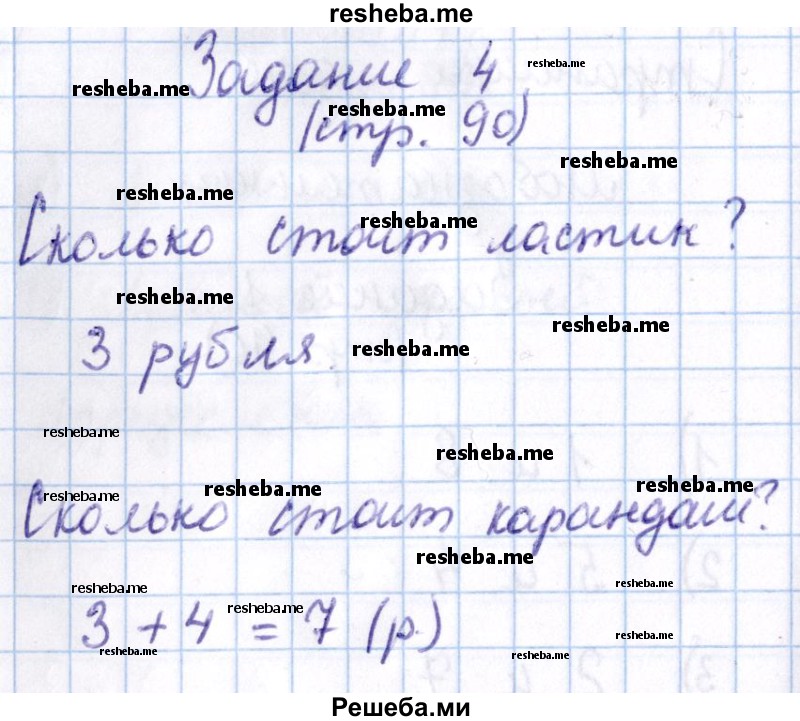 resheba.me
Задание 4
resheba.me
resheba.me
(стр. 90)
resheba.me
resheba.me
resheba.me
resheba.me
Сколько стоит ластик?
resheba.me
resheba.me
3 рубля.
resheba.me
resheba.me
resheba.me
resheba.me
resheba.me
resheba.me
Сколько стоит карандаш?
resheba.me
resheba.me
resheba.me
resheba.me
3 + 4 = 7 (р.)
resheba.me
resheba.me
resheba.me
Решеба.ми